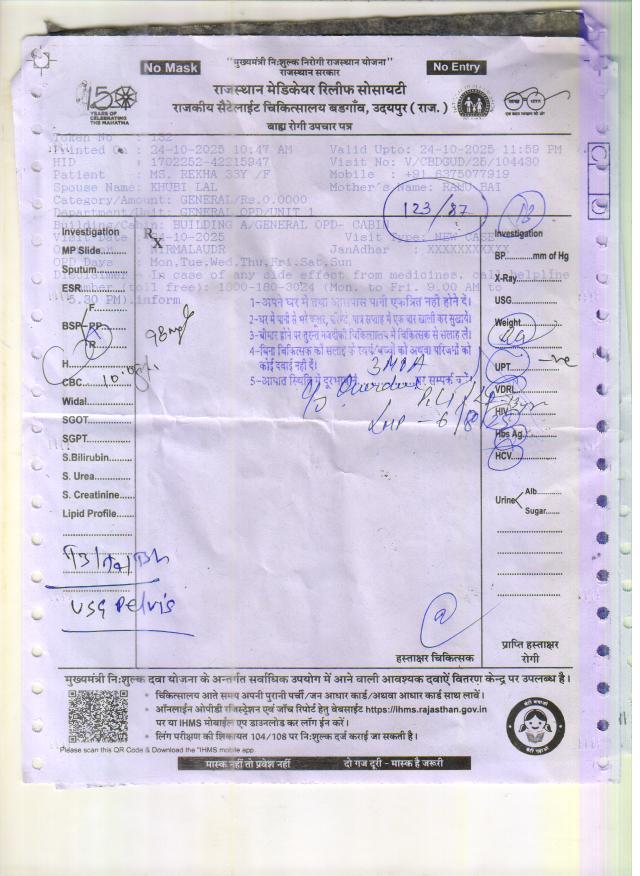 No Mask
"मुख्यमंत्री निःशुल्क निरोगी राजस्थान योजना"
राजस्थान सरकार
No Entry
150
YEARS OF
CELEBRATING
THE MAHATMA
राजस्थान मेडिकेयर रिलीफ सोसायटी
राजकीय सैटेलाईट चिकित्सालय बडगाँव, उदयपुर ( राज. )
बाह्य रोगी उपचार पत्र
Token No : 132
Printed On : 24-10-2025 10:47 AM Valid Upto: 24-10-2025 11:59 PM
HID : 1702252-42215947 Visit No: V/CBDGUD/25/104430
Patient : MS. REKHA 33Y /F Mobile : +91 6375077919
Spouse Name: KHUBI LAL Mother's Name: RAMU BAI
Category/Amount: GENERAL/Rs.0.0000
Department/Unit: GENERAL OPD/UNIT 1
123/87
Building/Cabin: BUILDING A/GENERAL OPD- CABIN
Visit Date : 24-10-2025 Visit Type: NEW CASE
: NIRMALAUDR JanAdhar : XXXXXXXXXXX
OPD Days : Mon,Tue,Wed,Thu,Fri,Sat,Sun
Disclaimer - In case of any side effect from medicines, call helpline
number (toll free): 1800-180-3024 (Mon. to Fri. 9.00 AM to
5.30 PM).inform
Rx
Investigation
MP Slide
Sputum
ESR
F
BSP PP
R
98
H
CBC
10.
Widal
SGOT
SGPT
S.Bilirubin
S. Urea
S. Creatinine
Lipid Profile
T3/T4/TSH
USG Pelvis
1-अपने घर में तथा आसपास पानी एकत्रित नहीं होने दें।
2-घर में पानी से भरे कूलर, पात्र सप्ताह में एक बार खाली कर सुखायें।
3-बीमार होने पर तुरन्त नजदीकी चिकित्सालय में चिकित्सक से सलाह लें।
4-बिना चिकित्सक की सलाह के स्वयं/बच्चों को अथवा परिजनों को
कोई दवाई नहीं दें।
5-आपात स्थिति में दूरभाष पर सम्पर्क करें।
LMP - 6/8/25
Investigation
BP mm of Hg
X-Ray
USG
Weight
UPT -ve
VDRL
HIV
Hbs Ag.
HCV
Urine
Alb
Sugar
हस्ताक्षर चिकित्सक
प्राप्ति हस्ताक्षर
रोगी
मुख्यमंत्री निःशुल्क दवा योजना के अन्तर्गत सर्वाधिक उपयोग में आने वाली आवश्यक दवाऐं वितरण केन्द्र पर उपलब्ध है।
• चिकित्सालय आते समय अपनी पुरानी पर्ची/जन आधार कार्ड/अथवा आधार कार्ड साथ लावें।
• ऑनलाईन ओपीडी रजिस्ट्रेशन एवं जाँच रिपोर्ट हेतु वेबसाईट https://ihms.rajasthan.gov.in
पर या IHMS मोबाईल एप डाउनलोड कर लॉग ईन करें।
• लिंग परीक्षण की शिकायत 104/108 पर निःशुल्क दर्ज कराई जा सकती है।
Please scan this QR Code & Download the "IHMS mobile app.
मास्क नहीं तो प्रवेश नहीं दो गज दूरी - मास्क है जरूरी